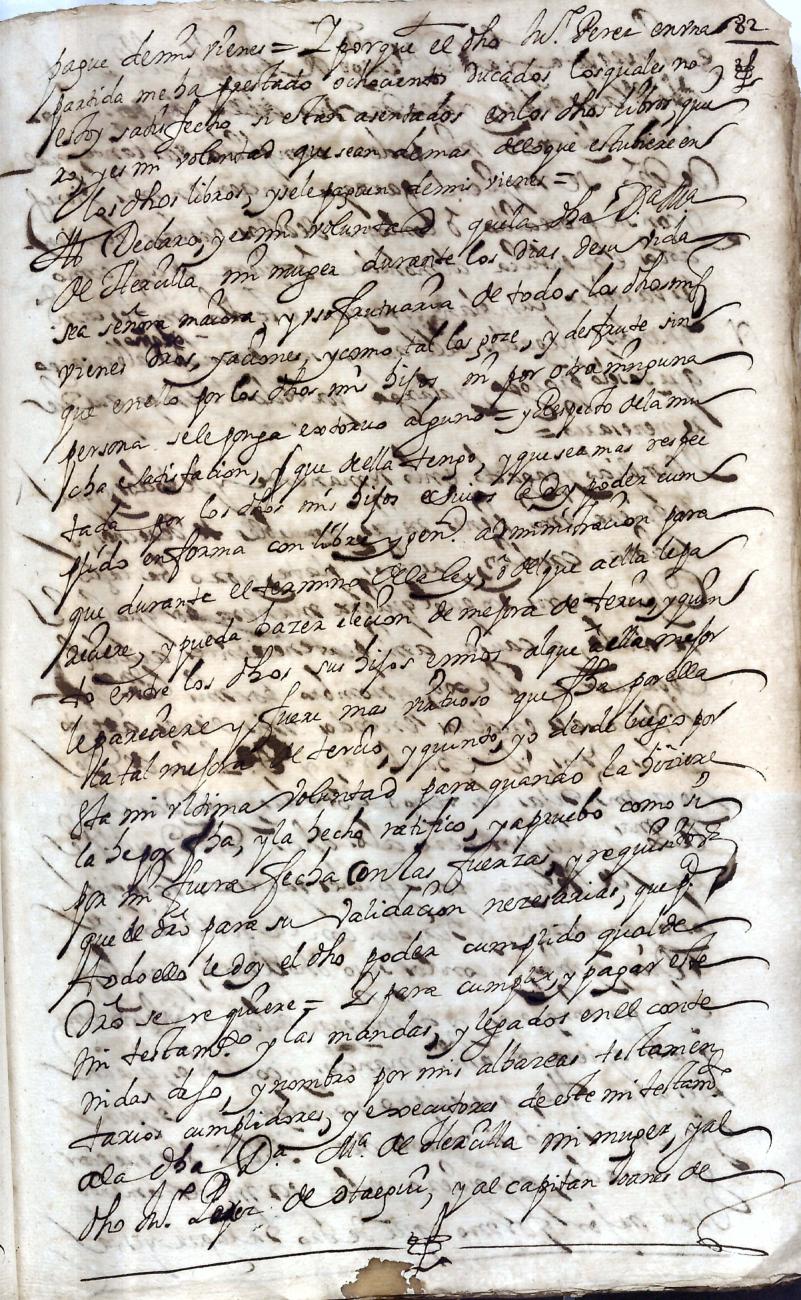 82
pague de mis vienes = Y porque el dho Mn. Perez en vna
partida me ha prestado ochocientos ducados los quales no
estoy satisfecho si estan asentados en los dhos libros, que
ro, y es mi voluntad que sean demas de lo que estubiere en
los dhos libros, y se le paguen de mis vienes =
Yt Declaro, y es mi voluntad que la dha Da. Ma
de Hercilla mi muger durante los dias de su vida
sea señora maiora, y vsofrutuaria de todos los dhos mis
vienes dros, y aciones, y como tal los goze, y desfrute sin
que en ello por los dhos mis hijos ni por otra ninguna
persona se le ponga estoruo alguno = y Respecto de la mu
cha satisfacion, que della tengo, y que sea mas respe
tada por los dhos mis hijos e suios le doy poder cum
plido en forma con libre y gen.l administracion para
que durante el termino de la ley, o del que a ella le pa
reciere, y pueda hazer elecion de mejora de tercio, y quin
to entre los dhos sus hijos e mios al que a ella mejor
le pareciere y fuere mas virtuoso que fha por ella
la tal mejora de tercio, y quinto, yo desde luego por
esta mi vltima voluntad para quando la hiziere
la he por fha, y la hecho ratifico, y apruebo como si
por mi fuera fecha con las fuerzas, y requisitos
que de dro para su validacion nezesarias, que pa
todo ello le doy el dho poder cumplido qual de
dro se requiere = Y para cumplir, y pagar este
mi testamto y las mandas, y legados en el conte
nidas dejo, y nombro por mis albaceas testamen
tarios cumplidores, y executores de este mi testamto
a la dha Da. Ma. de Hercilla mi muger, y al
dho Mn. Perez de Otaegui, y al capitan Joanes de